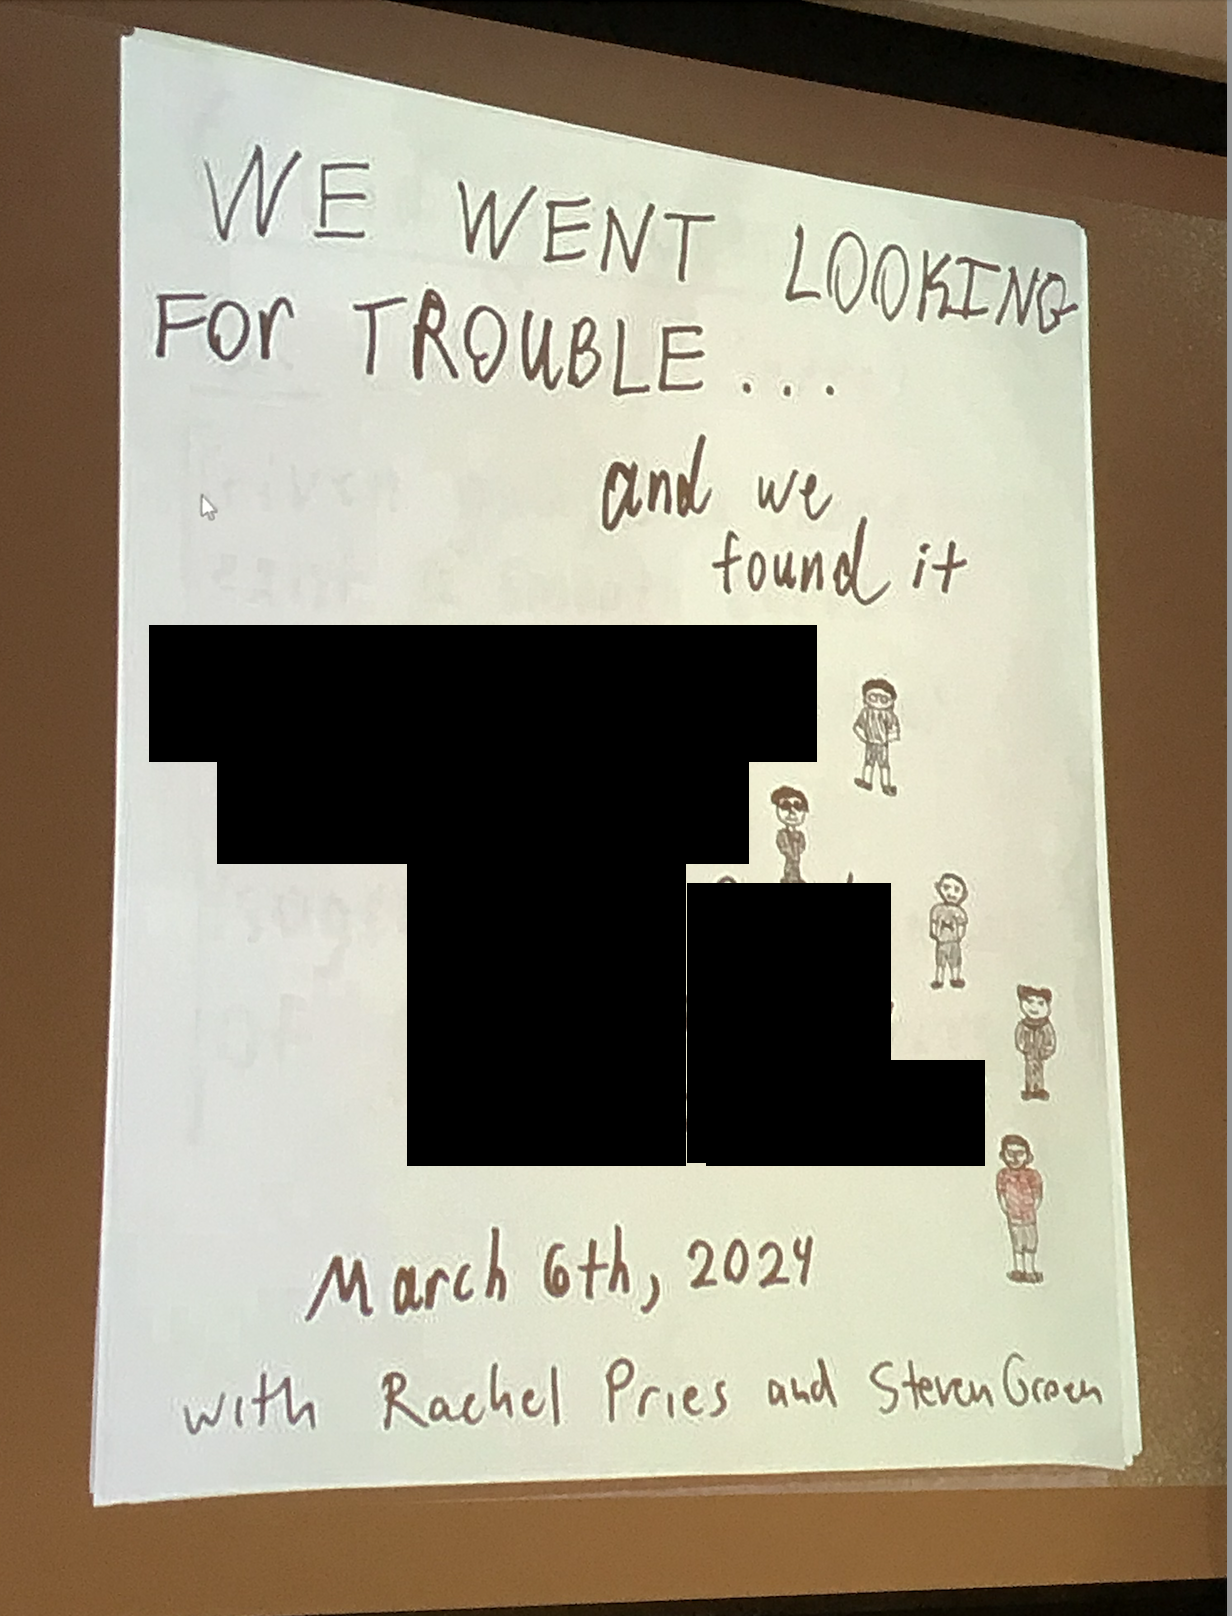 WE WENT LOOKING
FOr TROUBLE...
and we
found it
March 6th, 2024
with Rachel Pries and Steven Groen